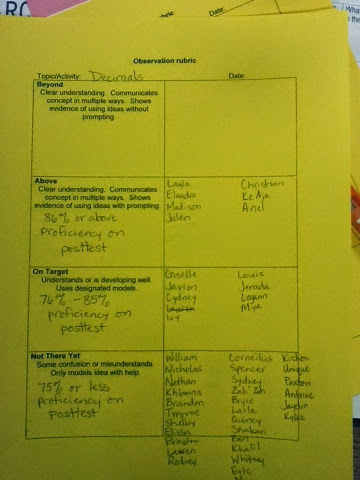 Observation rubric
Topic/Activity: Decimals Date:
Beyond
Clear understanding. Communicates
concept in multiple ways. Shows
evidence of using ideas without
prompting.
Above
Clear understanding. Communicates
concept in multiple ways. Shows
evidence of using ideas with prompting.
86% or above
proficiency on
posttest
Layla Christian
Elandra Ke'Aja
Madison Ariel
Jalen
On Target
Understands or is developing well.
Uses designated models.
76% - 85%
proficiency on
posttest
Giselle Louis
Javion Jenada
Cydney Logann
Mya
Ivy
Not There Yet
Some confusion or misunderstands.
Only models idea with help.
75% or less
proficiency on
posttest
William Cornelius
Nicholas Spencer Unique
Nathan Sydney Paxton
Khianna Zah'Zah Antoine
Brandon Bryce Jaydin
Tyronne Laila Kylee
Shelby Quincy
Elissa
Braydon Ben
Lauren Khalil
Rodney Whitney
Eric